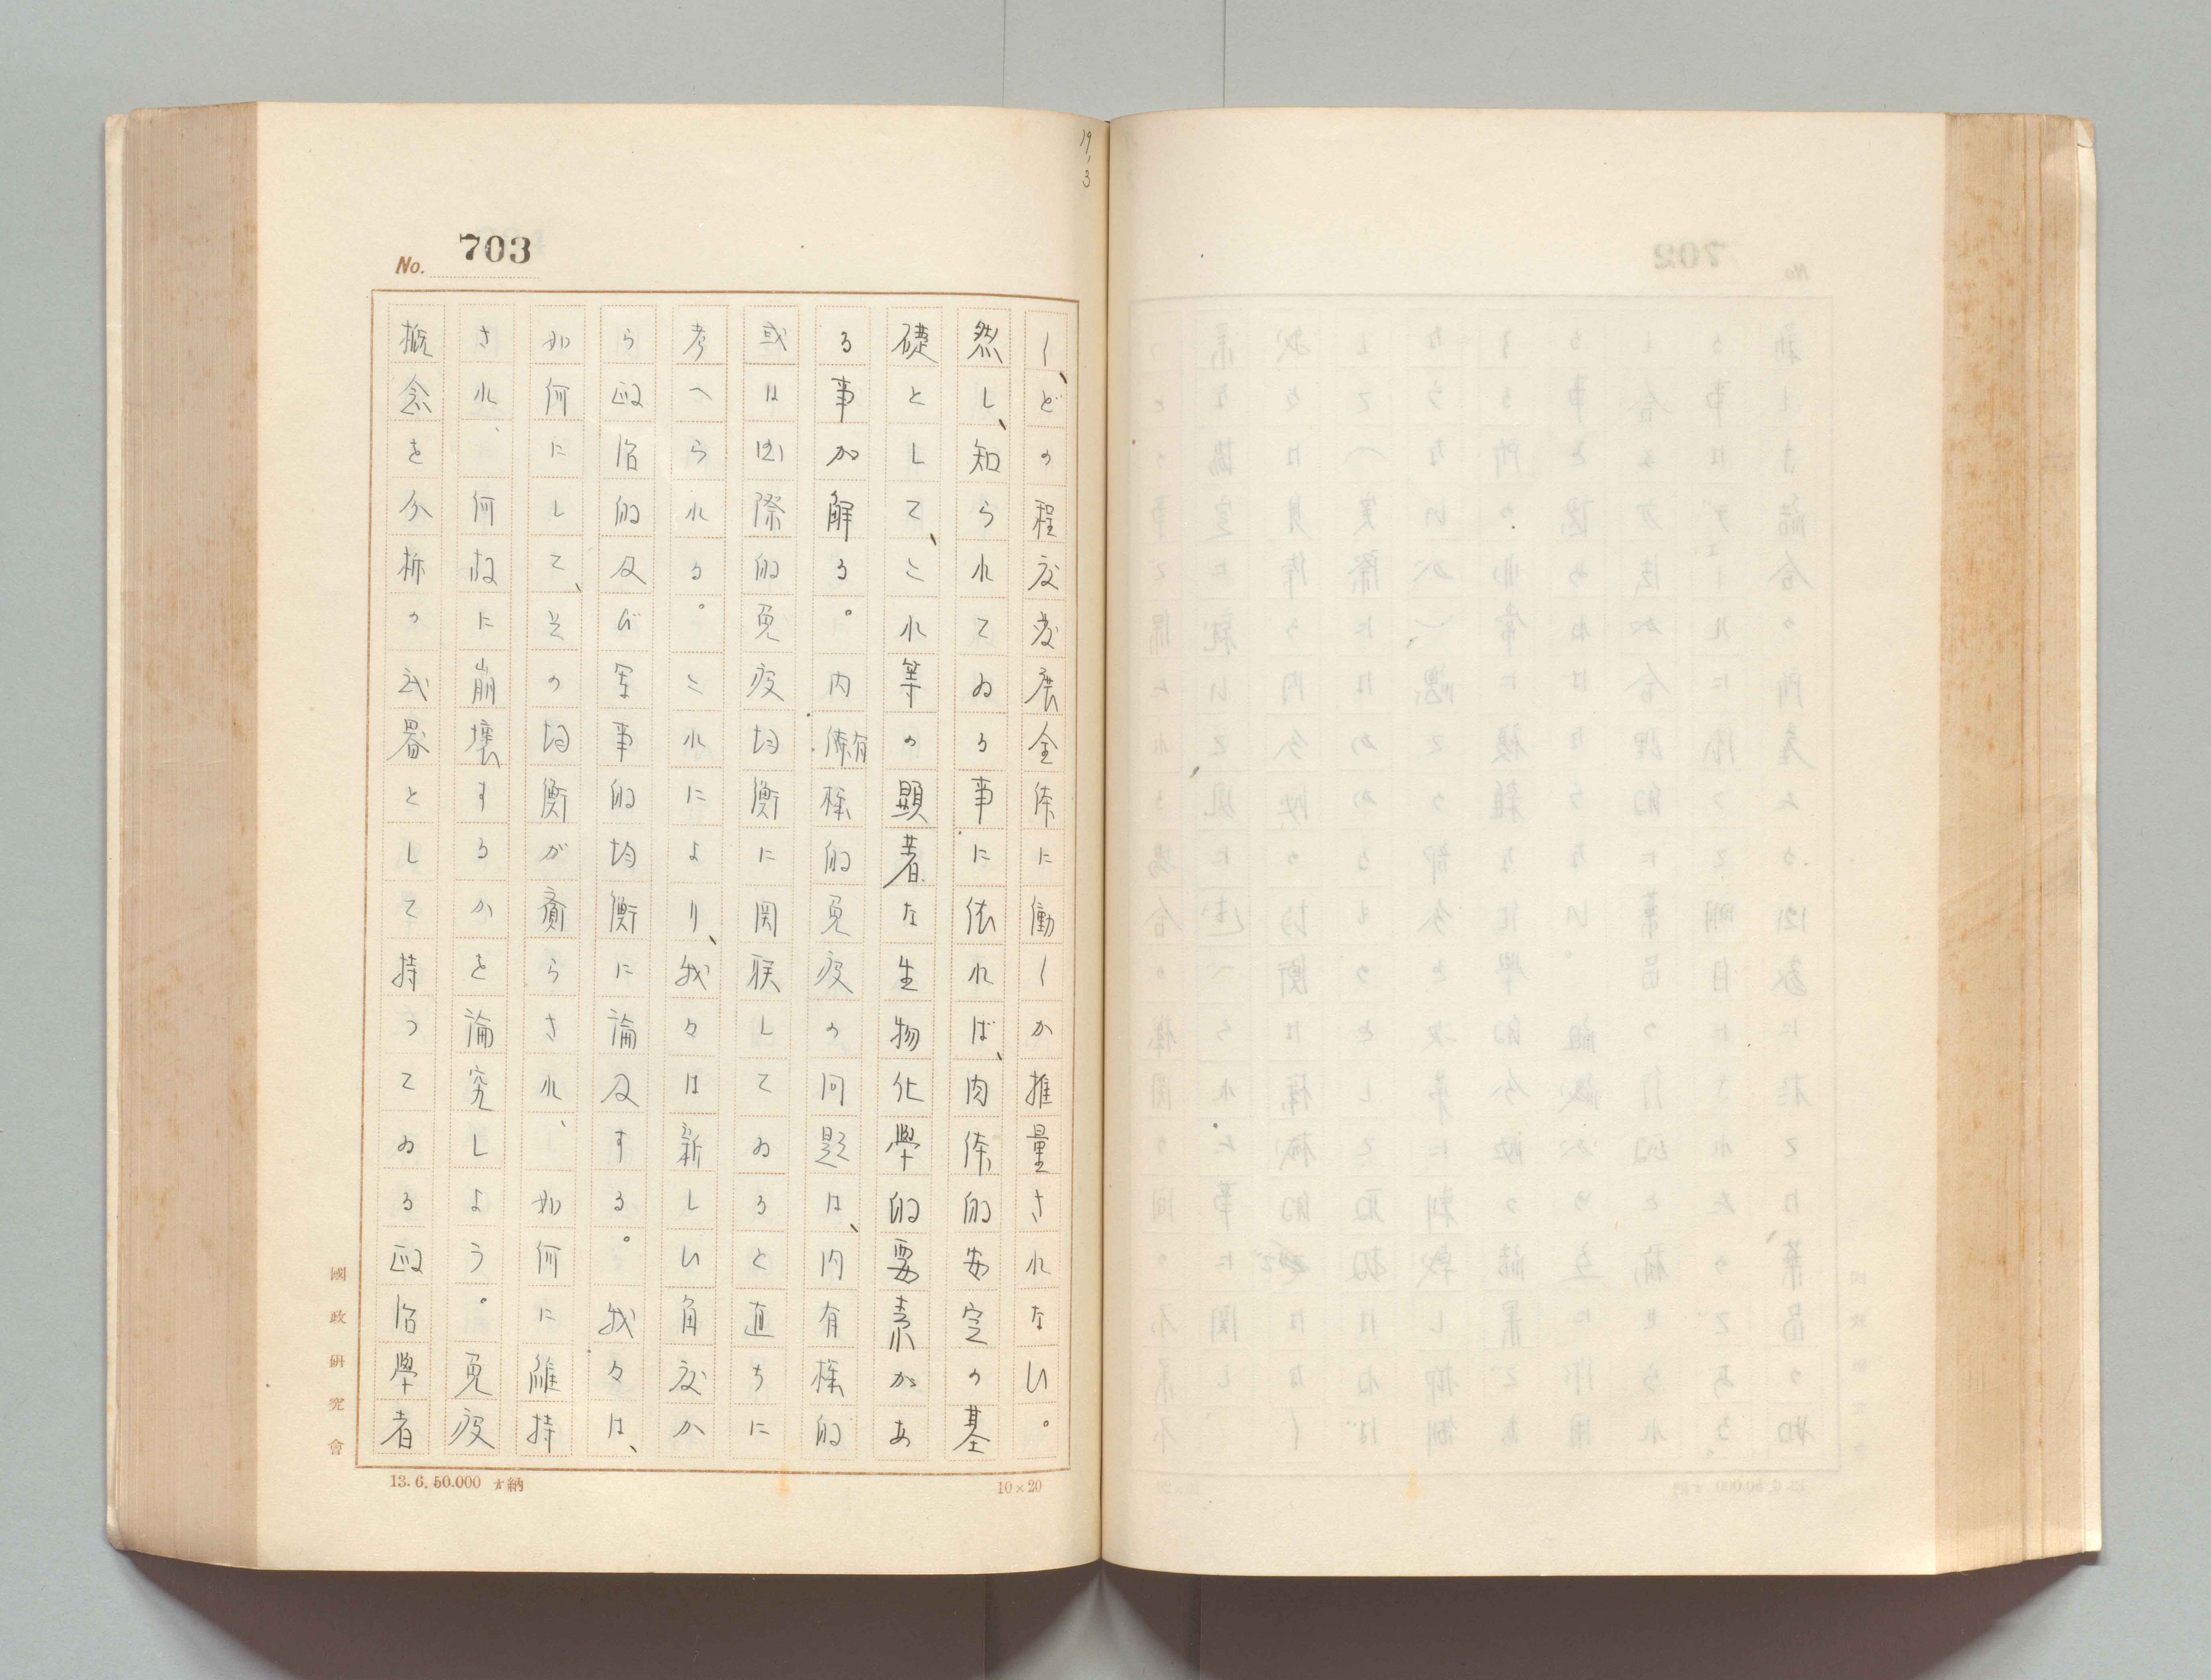 19,3
No. 703
く、どの程度発展全体に働くか推量されない。
然し、知られてゐる事に依れば、肉体的安定の基
礎として、これ等の顯著な生物化學的要素があ
る事が解る。内有機的免疫の問題は、内有機的
或は国際的免疫均衡に関聯してゐると直ちに
考へられる。これにより、我々は新しい角度か
ら政治的及び軍事的均衡に論及する。我々は、
如何にして、その均衡が齎らされ、如何に維持
され、何故に崩壊するかを論究しよう。免疫
概念を分析の武器として持つてゐる政治學者
國政研究會
13.6.50.000 納
10×20